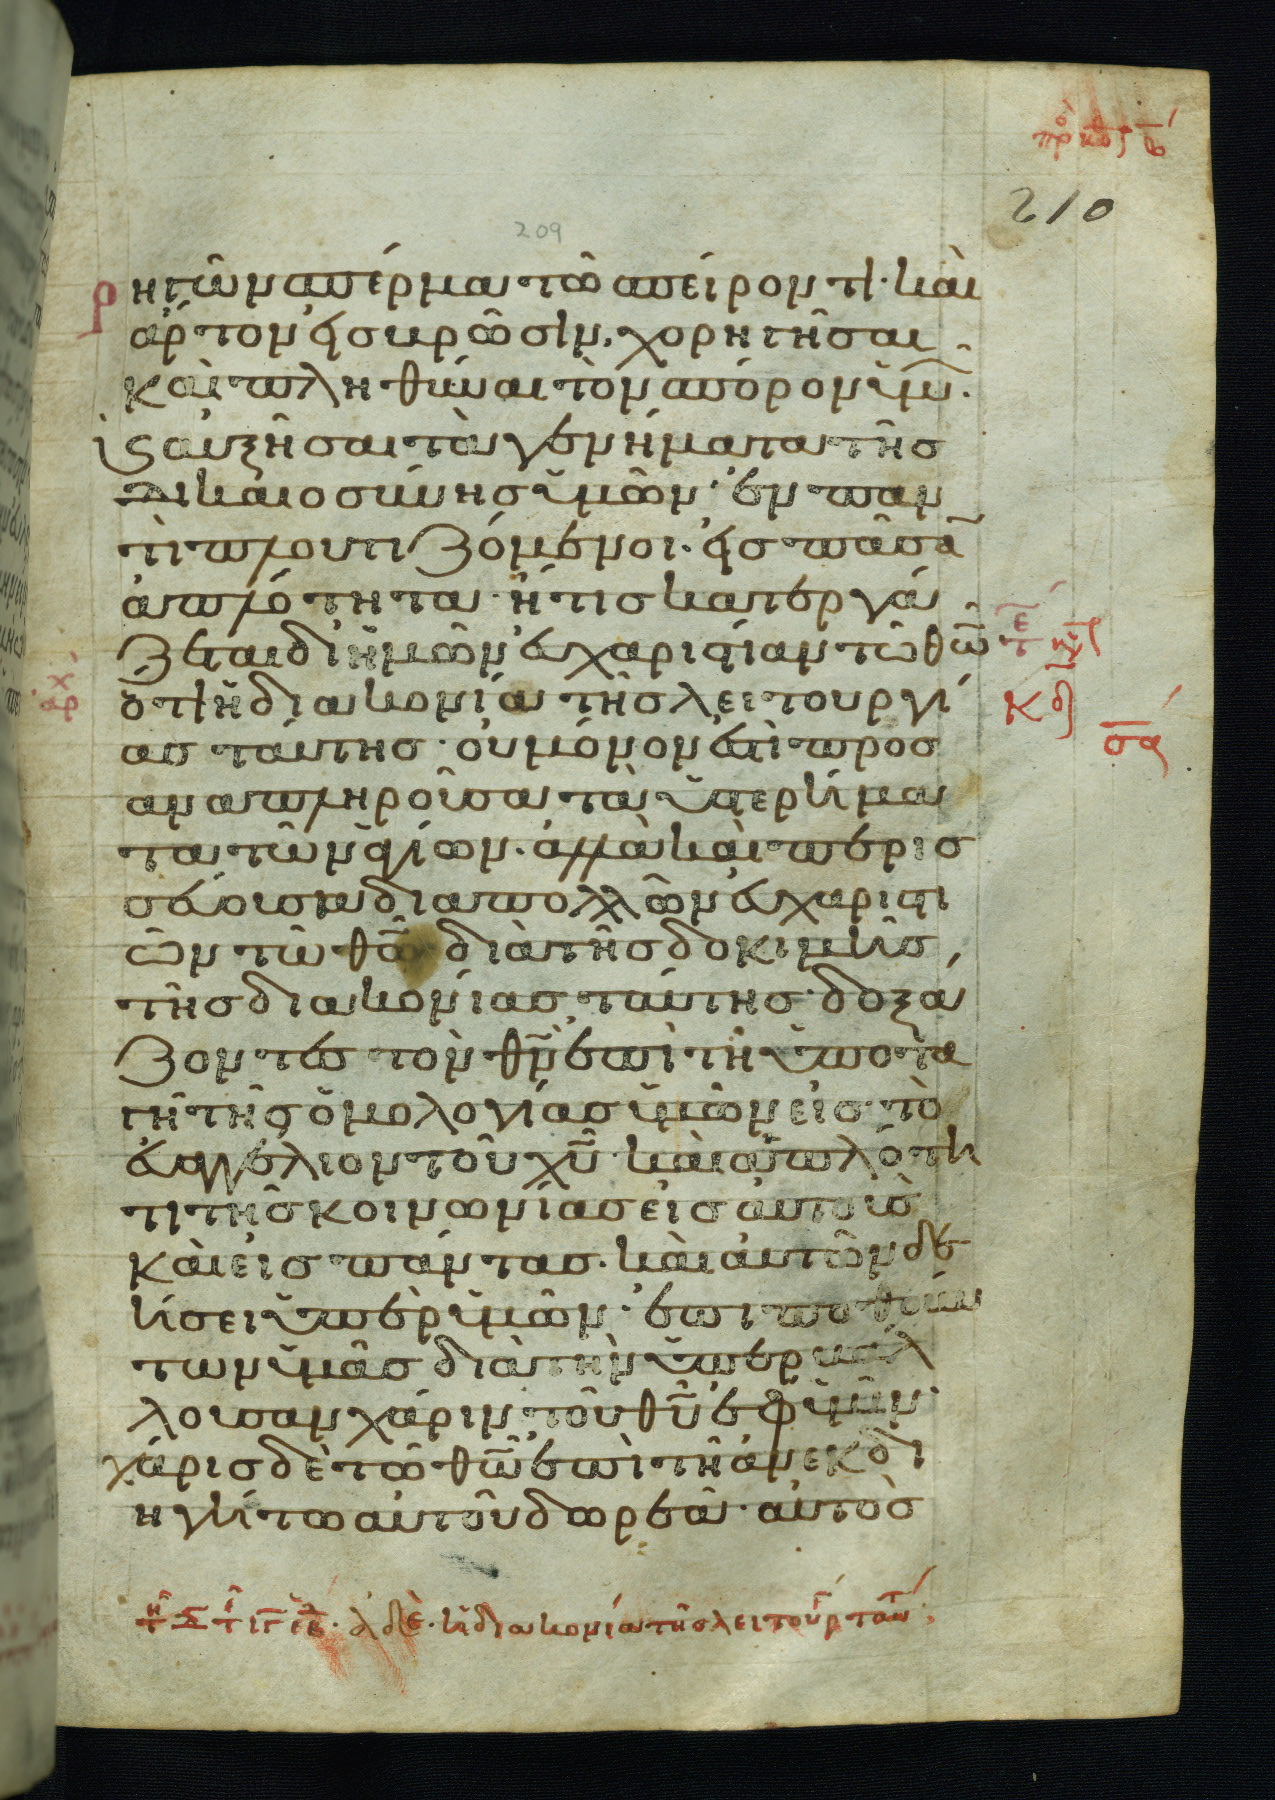 πρ κορ β
210
209
ρηγῶν σπέρμα τῶ σπείροντι· καὶ
ἄρτον εἰς βρῶσιν. χορηγῆσαι
καὶ πληθύναι τὸν σπόρον ὑμῶ̄.
κ̀ αὐξῆσαι τὰ γεννήματα τῆς
δικαιοσύνης ὑμῶν· ἐν παν
τὶ πλουτιζόμενοι· εἰς πᾶσᾱ
ἁπλότητα· ἥτις κατεργά
ζεται δι ἡμῶν εὐχαριστίαν τῶ θω̄
ὅτι ἡ διακονία τῆς λειτουργί
ας ταύτης· οὐ μόνον ἐστὶ προσ
αναπληροῦσα τὰ ὑστερήμα
τα τῶν ἁγίων. ἀλλὰ καὶ περισ
σεύουσα διὰ πολλῶν εὐχαριστι
ῶν τῶ θω̄ διὰ τῆς δοκιμῆς
τῆς διακονίας ταύτης· δοξά
ζοντες τὸν θν̄ ἐπὶ τῆ ὑποτα
γῆ τῆς ὁμολογίας ὑμῶν εἰς τὸ
εὐαγγέλιον τοῦ χῡ· καὶ ἁπλότη
τι τῆς κοινωνίας εἰς αὐτοὺς
καὶ εἰς πάντας. καὶ αὐτῶν δε
ήσει ὑπὲρ ὑμῶν· ἐπιποθούν
των ὑμᾶς διὰ τὴν ὑπερβάλ
λουσαν χάριν τοῦ θῡ ἐφ ὑμῖν·
χάρις δὲ τῶ θω̄ ἐπὶ τῆ ἀνεκδι
ηγήτω αὐτοῦ δωρεᾶ· αὐτὸς
ἀρχ
σα
ἀδε. ἡ διακονία τῆς λειτουρ ταυ